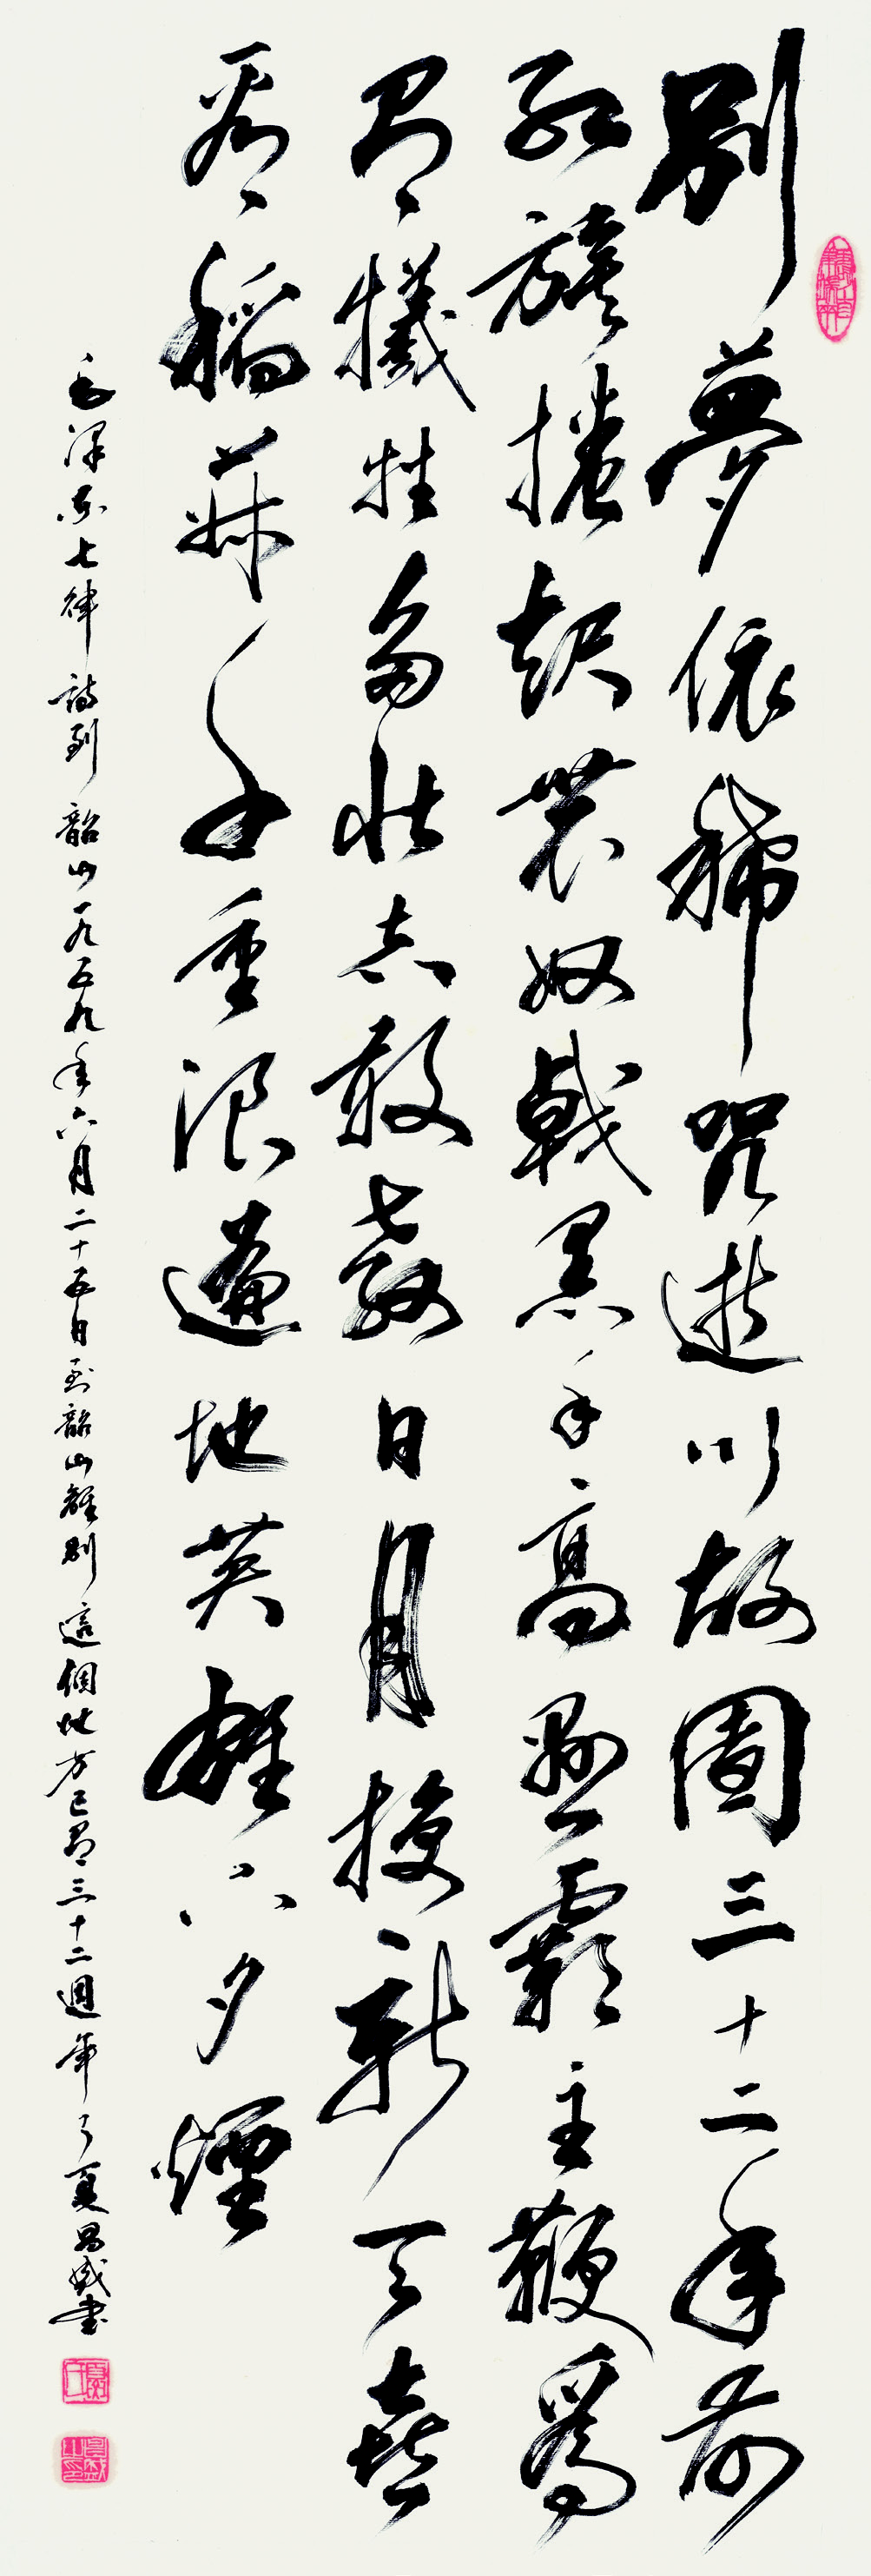 別夢依稀咒逝川故園三十二年前
紅旗捲起農奴戟黑手高懸霸主鞭為
有犧牲多壯志敢教日月換新天喜
看稻菽千重浪遍地英雄下夕煙
毛澤東七律詩到韶山一九五九年六月二十五日到韶山離別這個地方已有三十二週年了夏昌書